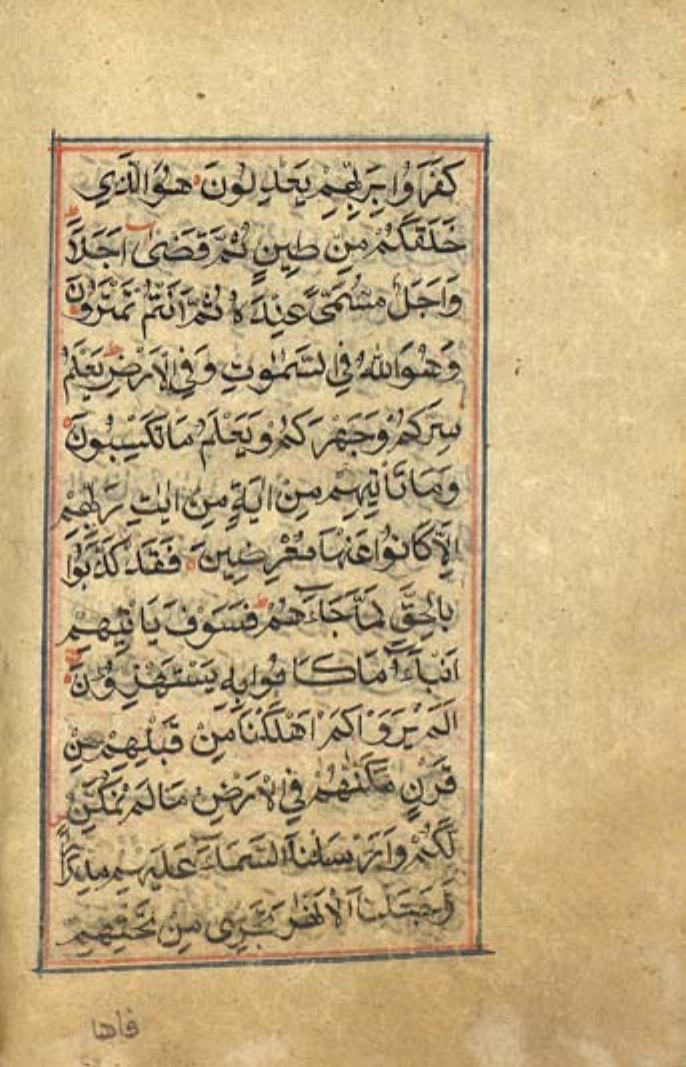 كَفَرَوُا بِرَبِّهِمْ يَعْدِلُونَ هُوَالَّذِي
خَلَقَكُمْ مِنْ طِينٍ ثُمَّ قَضٰى اَجَلًا
وَاَجَلٌ مُسَمًّى عِنْدَهُ ثُمَّ اَنْتُمْ تَمْتَرُونَ
وَهُوَاللهُ فِي السَّمٰوٰتِ وَفِي الْاَرْضِ يَعْلَمُ
سِرَّكُمْ وَجَهْرَكُمْ وَيَعْلَمُ مَاتَكْسِبُونَ
وَمَا تَأْتِيهِمْ مِنْ اٰيَةٍ مِنْ اٰيٰتِ رَبِّهِمْ
اِلَّا كَانُوا عَنْهَا مُعْرِضِينَ فَقَدْ كَذَّبُوا
بِالْحَقِّ لَمَّا جَاءَهُمْ فَسَوْفَ يَاْتِيهِمْ
اَنْبَاءُ مَاكَانُوا بِهِ يَسْتَهْزِؤُنَ
اَلَمْ يَرَوْا كَمْ اَهْلَكْنَا مِنْ قَبْلِهِمْ مِنْ
قَرْنٍ مَكَّنّٰهُمْ فِي الْاَرْضِ مَا لَمْ نُمَكِّنْ
لَكُمْ وَاَرْسَلْنَا السَّمَاءَ عَلَيْهِمْ مِدْرَارًا
وَجَعَلْنَا الْاَنْهٰرَ تَجْرِى مِنْ تَحْتِهِمْ
فاها